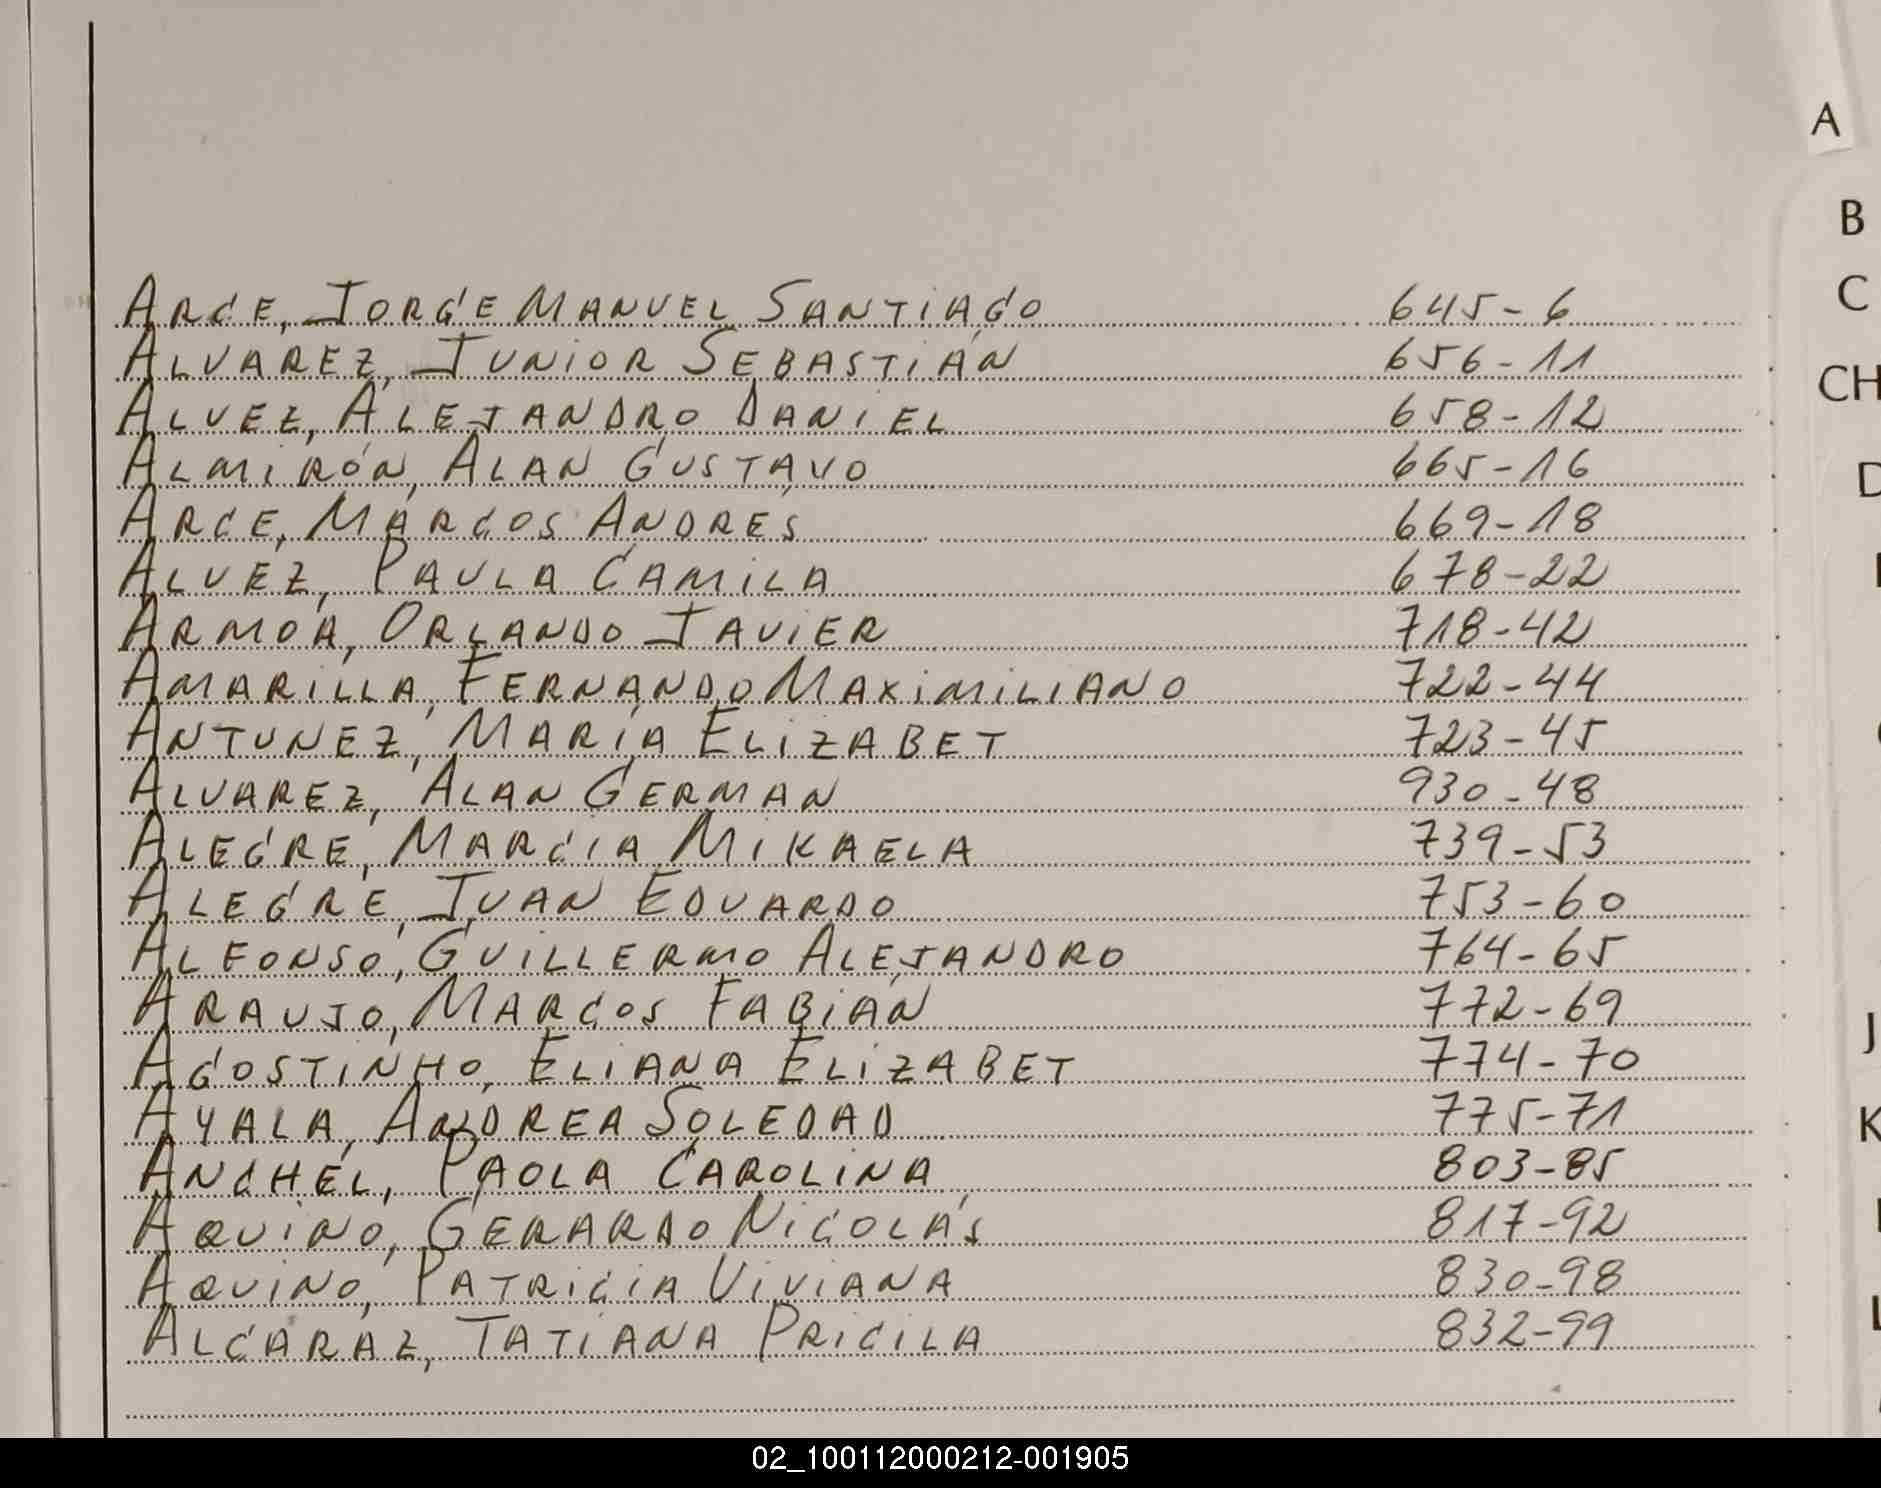 A
B
C
CH
D
ARCE, JORGE MANUEL SANTIAGO 645-6
ALVAREZ, JUNIOR SEBASTIÁN 656-11
ALVEZ, ALEJANDRO DANIEL 658-12
ALMIRÓN, ALAN GUSTAVO 665-16
ARCE, MARCOS ANDRÉS 669-18
ALVEZ, PAULA CAMILA 678-22
ARMOA, ORLANDO JAVIER 718-42
AMARILLA, FERNANDO MAXIMILIANO 722-44
ANTUNEZ, MARÍA ELIZABET 723-45
ALVAREZ, ALAN GERMAN 930-48
ALEGRE, MARCIA MIKAELA 739-53
ALEGRE, JUAN EDUARDO 753-60
ALFONSO, GUILLERMO ALEJANDRO 764-65
ARAUJO, MARCOS FABIÁN 772-69
AGOSTINHO, ELIANA ELIZABET 774-70
AYALA, ANDREA SOLEDAD 775-71
ANCHEL, PAOLA CAROLINA 803-85
AQUINO, GERARDO NICOLÁS 817-92
AQUINO, PATRICIA VIVIANA 830-98
ALCARAZ, TATIANA PRICILA 832-99
J
K
L
02_100112000212-001905